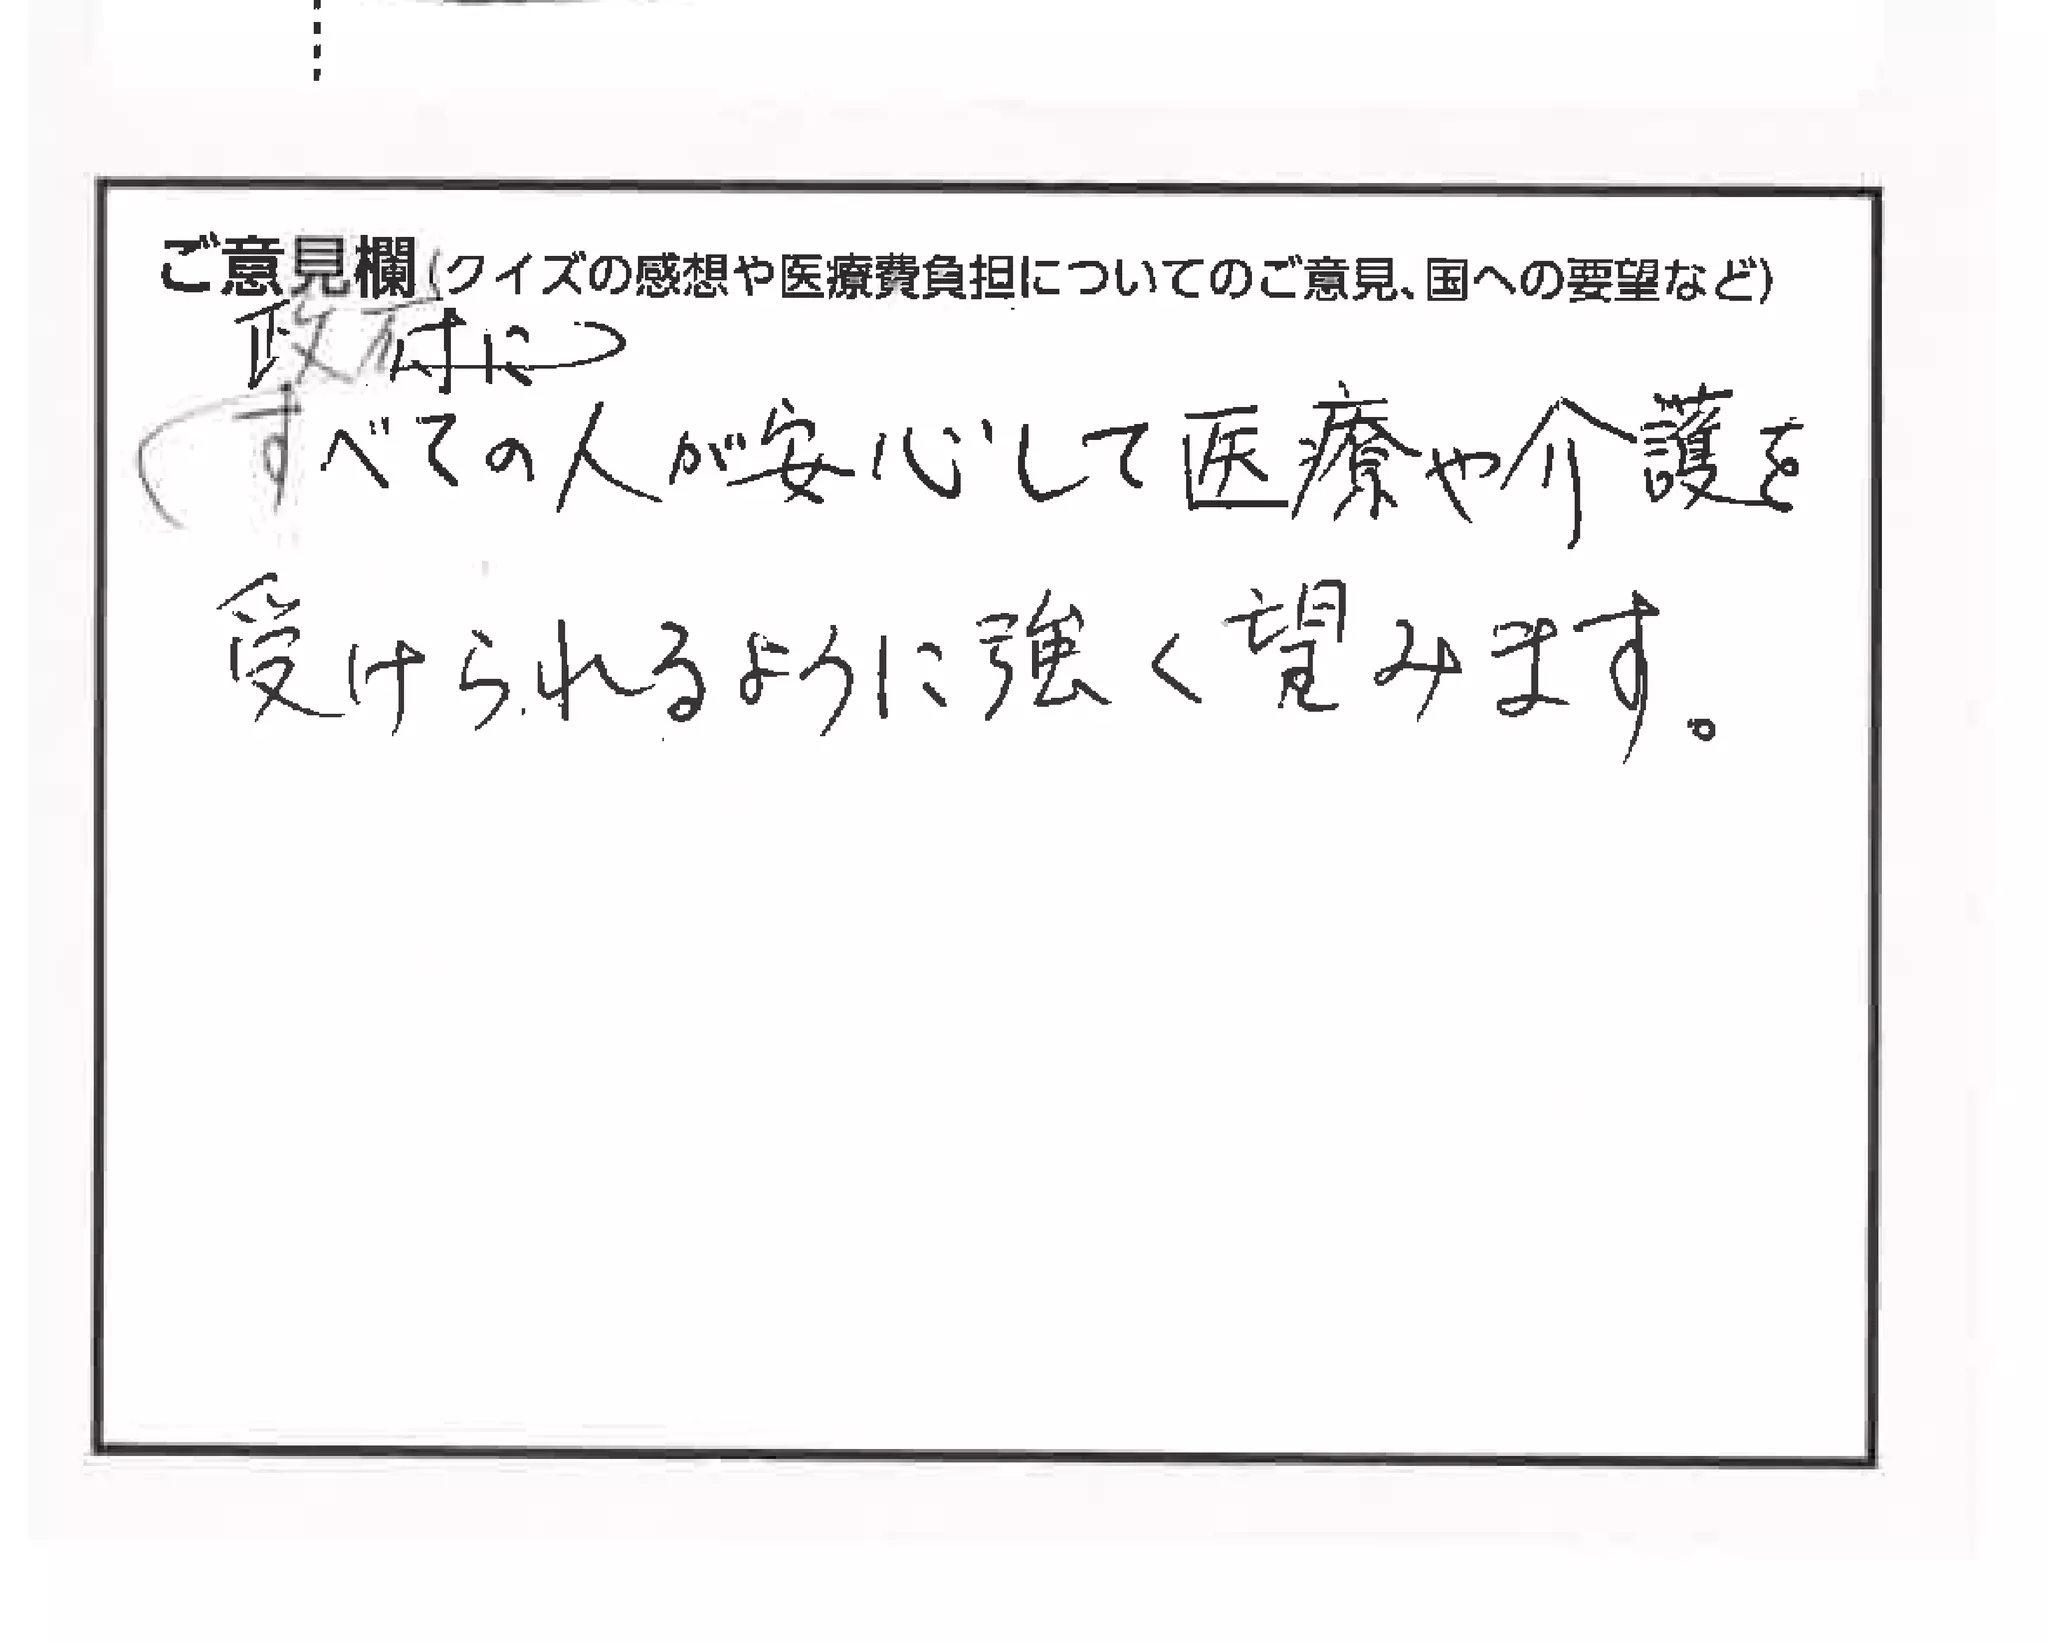 ご意見欄(クイズの感想や医療費負担についてのご意見、国への要望など)
政府に
すべての人が安心して医療や介護を
受けられるように強く望みます。